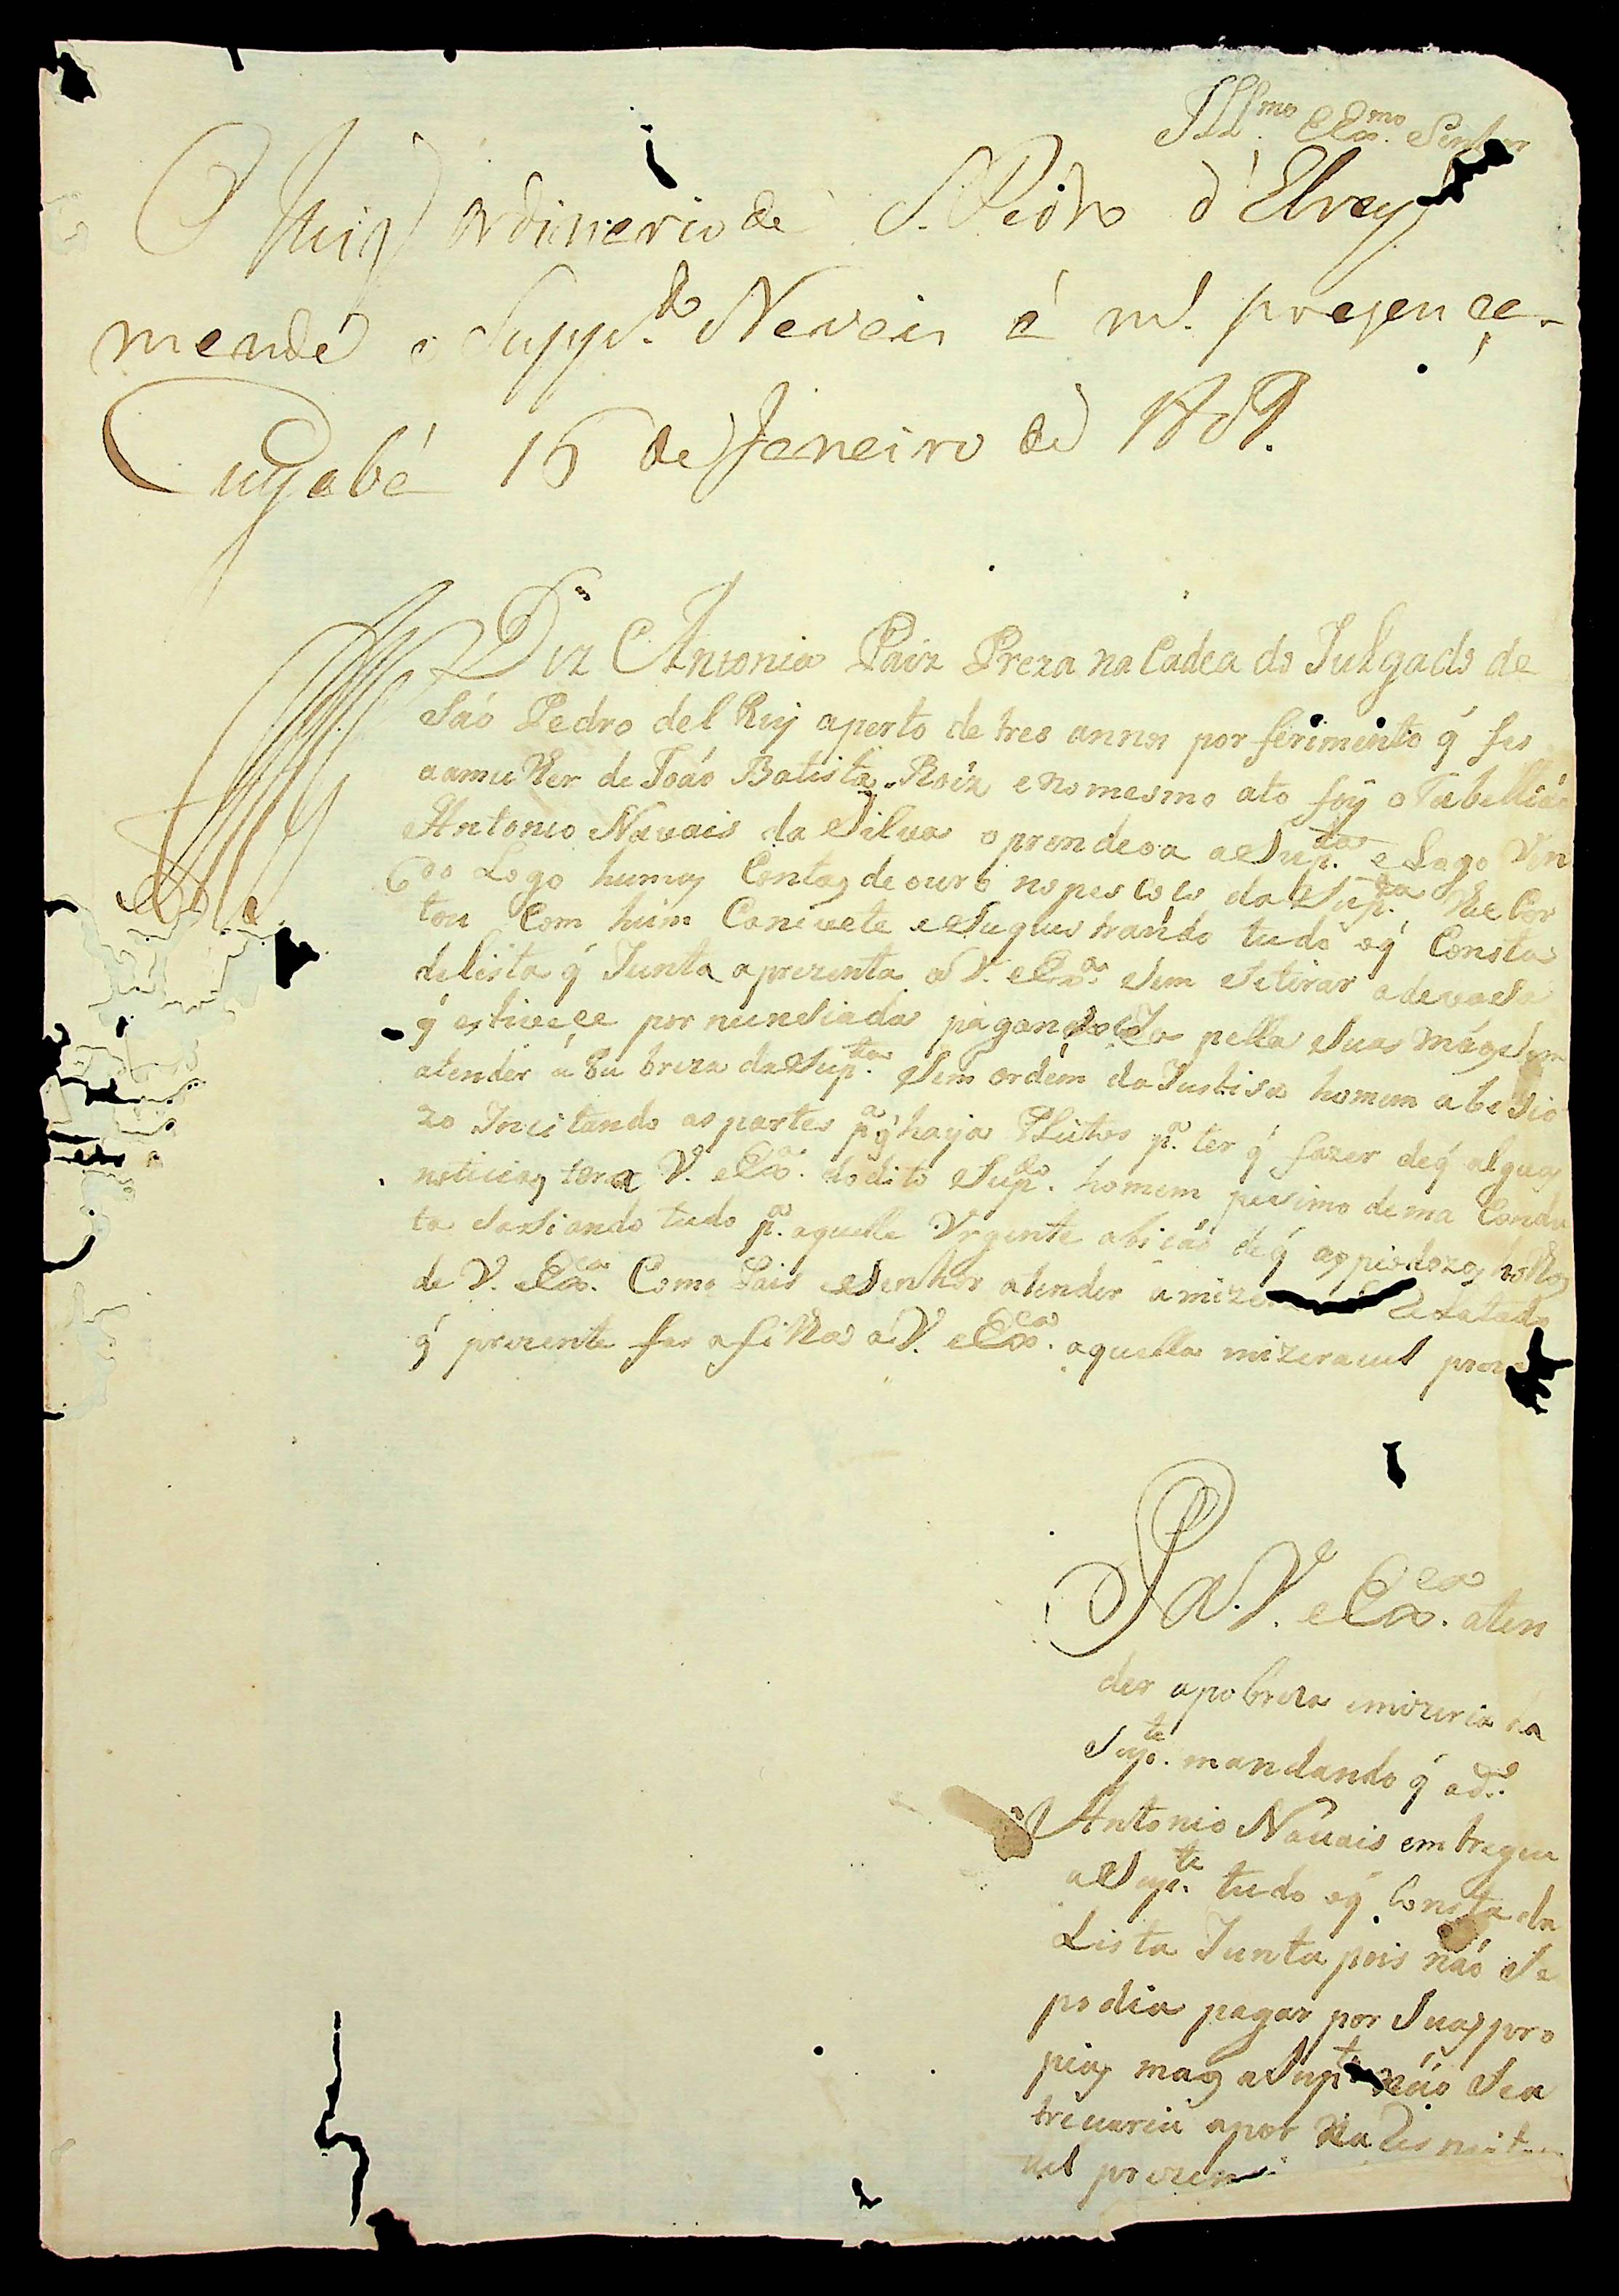 Ill.mo e Ex.mo Senhor
O Juiz Ordinario de S. Pedro d'Elrey
mande o Supp.do Navais á m.a prezença
Cuyabá 16 de Janeiro de 1809.
Diz Antonia Paiz Preza na Cadea do Julgado de
Saó Pedro del Rey aperto de tres annos por ferimento q́ fes
aamulher de Joáo Batista Roiz e no mesmo ato foy o Tabelliáo
Antonio Navais da Silva o prendeoa a Sup.ta e Logo Vin
do Logo humas Contas de ouro no pescoco da Sup.ta lhe Cor
tou Com hum Canivete e Suquestrando tudo oq́ Consta
de lista q́ Junta aprezenta a V. eEx.ca Sem Setirar adevaSa
q́ estivece por nunSiada pagandoSe pella Suas máos Sem
atender á Pu breza da Sup.ta Sem ordem da Justisa homem abeSio
zo Incitando as partes p.a q́ haja PLeitos p.a ter q́ fazer deq́ alguas
noticias tera V. eEx.ca do dito Sup.do homem pesimo de ma Condu
ta tudo p.a aquelle Vrgente abicáo de q́ as piedozos holhos
de V. eEx.ca Como Pais eSenhor atender a Estado
q́ prezente fas afilha a V. eEx.ca aquella mizeravel preza
P. a. V. eEx.cca aten
der apobreza emizeria da
Sup.te mandando q́ od.o
Antonio Navais emtregue
aSup.te tudo oq́ Consta da
Lista Junta pois náo Se
podia pagar por Suas pro
pias mas aSup.te náo Sea
treveria apor
vel prezen